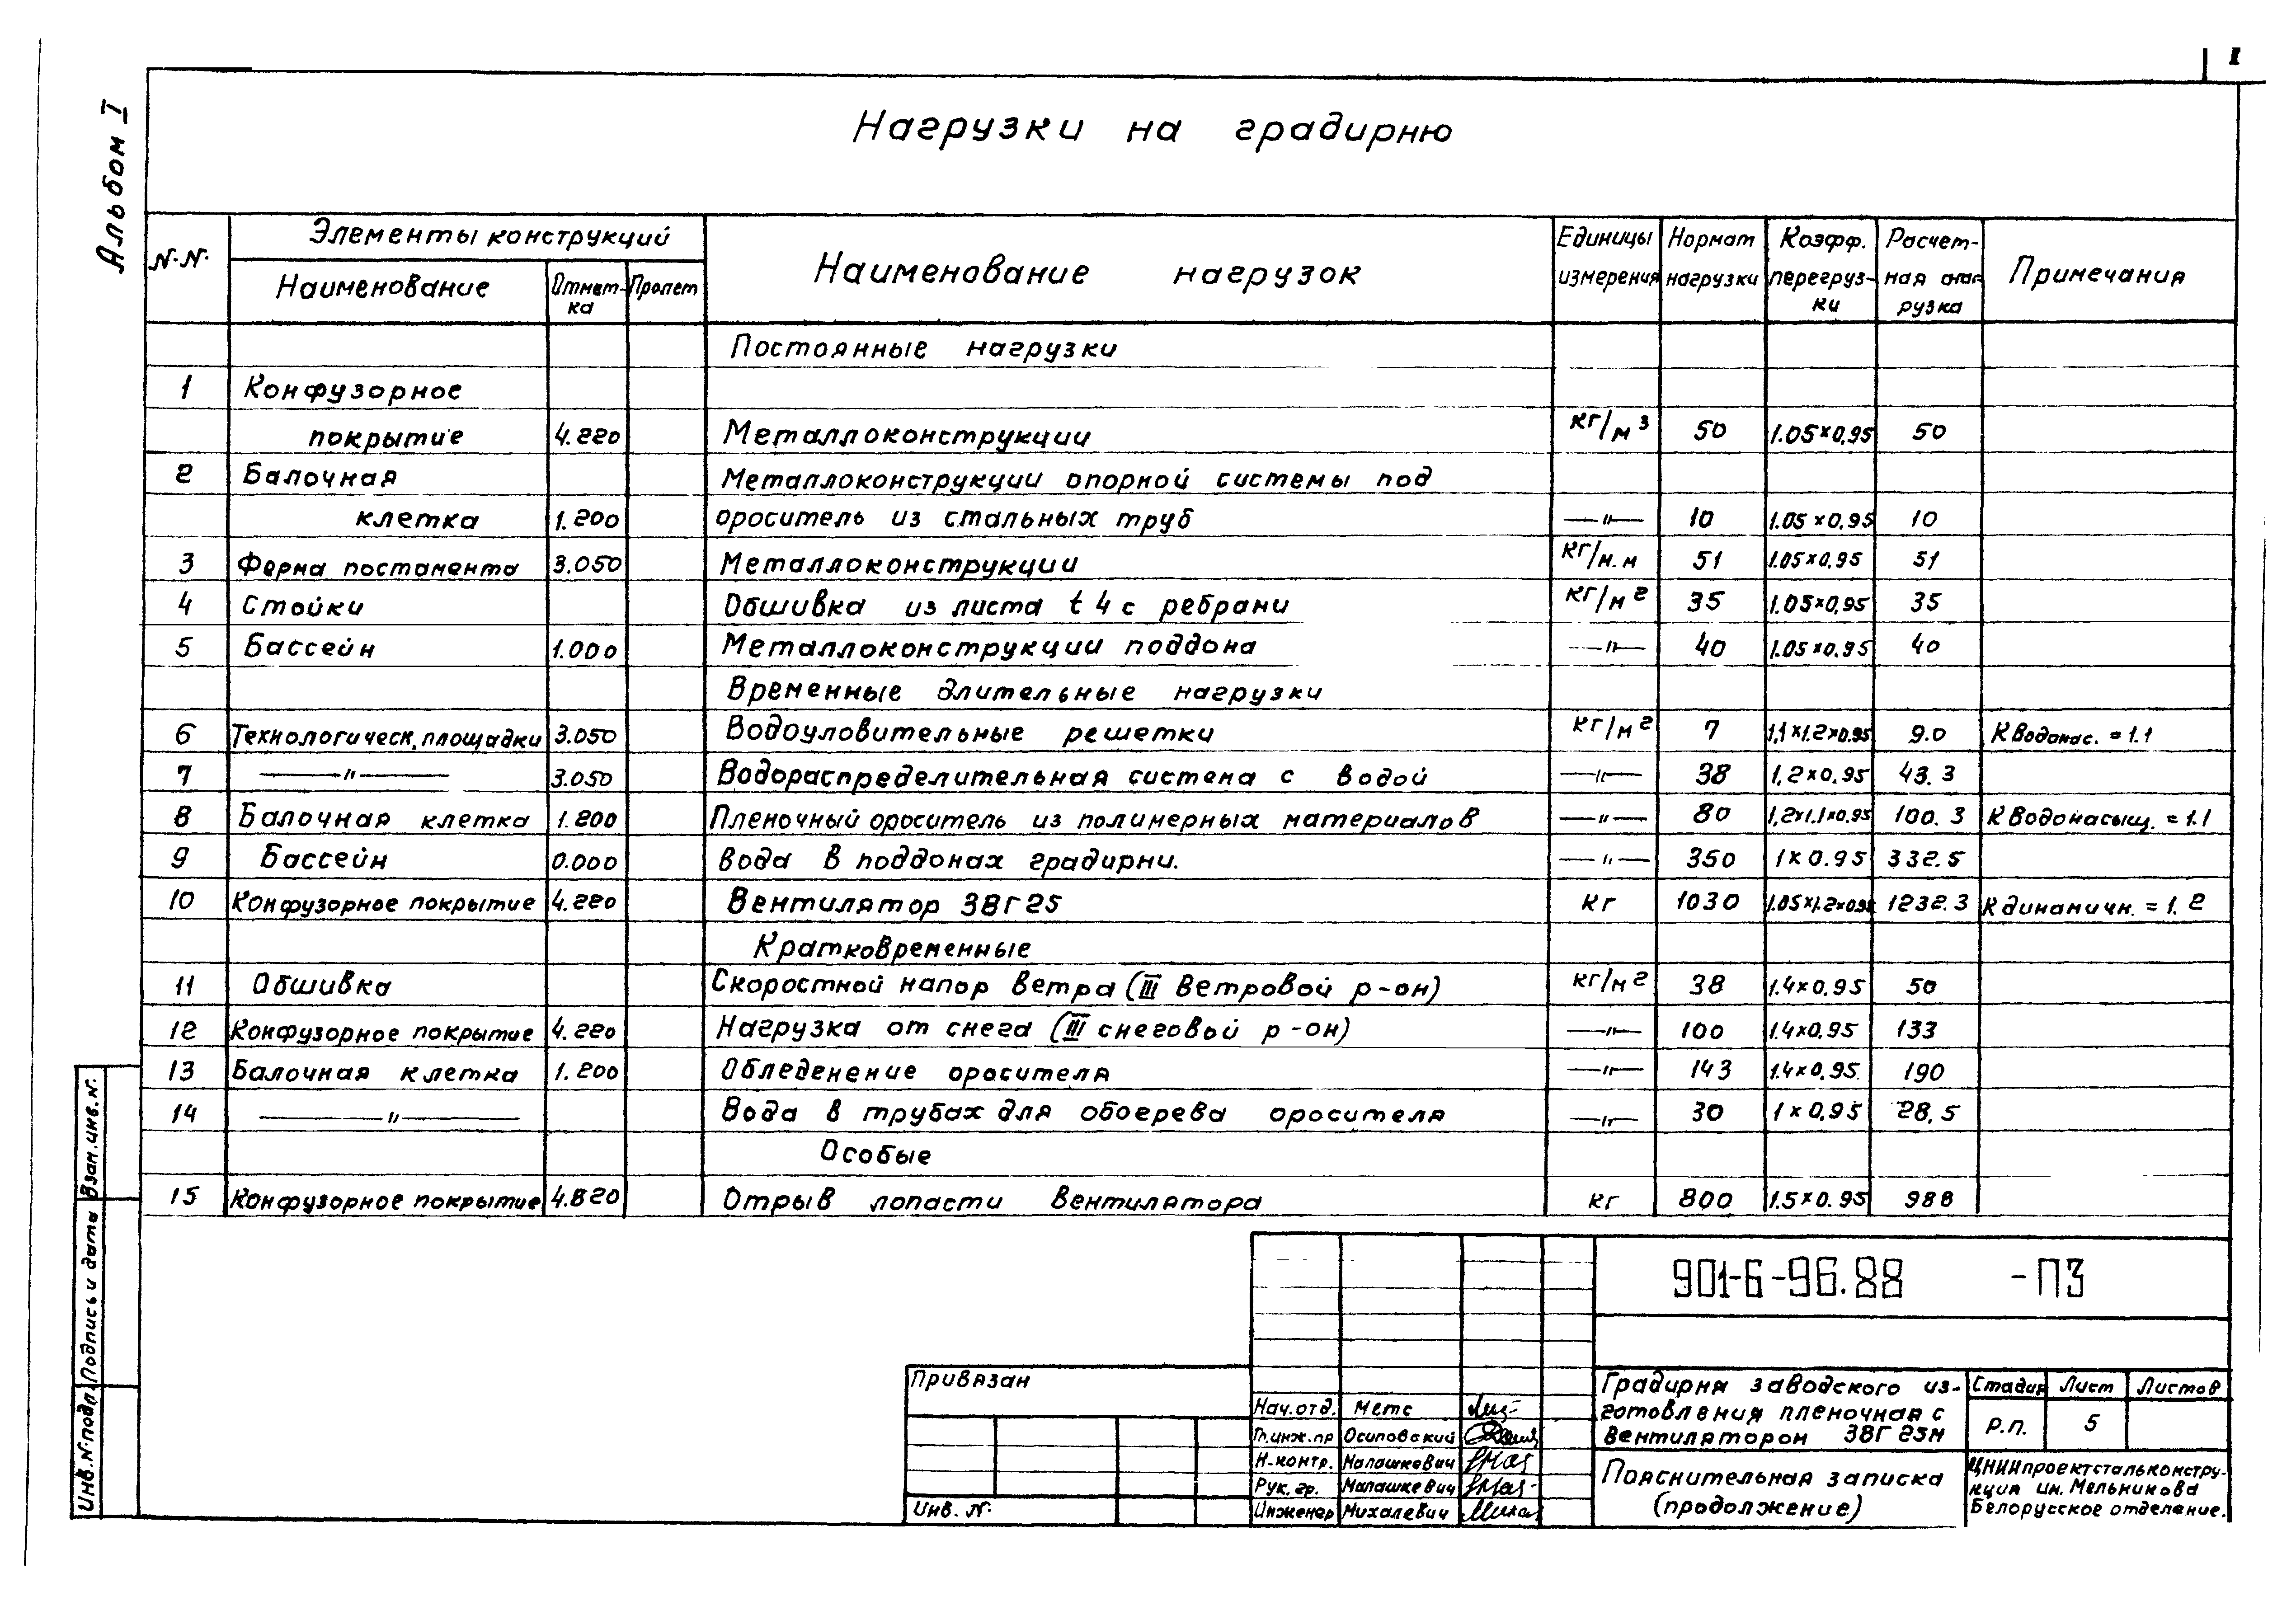 I
Альбом I
Нагрузки на градирню
N.N.
Элементы конструкций
Наименование
Отмет-
ка
Пролет
Наименование нагрузок
Единицы
измерения
Нормат
нагрузки
Коэфф.
перегруз-
ки
Расчет-
ная наг-
рузка
Примечания
Постоянные нагрузки
1 Конфузорное
покрытие 4.220 Металлоконструкции кг/м³ 50 1.05×0,95 50
2 Балочная Металлоконструкции опорной системы под
клетка 1.200 ороситель из стальных труб —"— 10 1.05×0.95 10
3 Ферма постамента 3.050 Металлоконструкции кг/м.м 51 1.05×0.95 51
4 Стойки Обшивка из листа t 4 с ребрами кг/м² 35 1.05×0,95 35
5 Бассейн 1.000 Металлоконструкции поддона —"— 40 1.05×0.95 40
Временные длительные нагрузки
6 Технологическ. площадки 3.050 Водоуловительные решетки кг/м² 7 1,1×1.2×0.95 9.0 К водонас. = 1.1
7 —"— 3.050 Водораспределительная система с водой —"— 38 1,2×0.95 43.3
8 Балочная клетка 1.200 Пленочный ороситель из полимерных материалов —"— 80 1,2×1.1×0.95 100.3 К водонасыщ. = 1.1
9 Бассейн 0.000 вода в поддонах градирни. —"— 350 1×0.95 332.5
10 Конфузорное покрытие 4.220 Вентилятор 3ВГ25 кг 1030 1.05×1.2×0.95 1232.3 К динамичн. = 1.2
Кратковременные
11 Обшивка Скоростной напор ветра (III ветровой р-он) кг/м² 38 1.4×0.95 50
12 Конфузорное покрытие 4.220 Нагрузка от снега (III снеговой р-он) —"— 100 1.4×0,95 133
13 Балочная клетка 1.200 Обледенение оросителя —"— 143 1.4×0.95 190
14 —"— Вода в трубах для обогрева оросителя —"— 30 1×0,95 28,5
Особые
15 Конфузорное покрытие 4.820 Отрыв лопасти вентилятора кг 800 1.5×0.95 988
Взам.инв.N.
Подпись и дата
Инв.N.подл.
901-6-96.88 -ПЗ
Привязан
Инв. N.
Нач.отд. Метс
Гл.инж.пр Осиповский
Н-контр. Малашкевич
Рук. гр. Малашкевич
Инженер Михалевич
Градирня заводского из-
готовления пленочная с
вентилятором 3ВГ 25М
Стадия Лист Листов
Р.П. 5
Пояснительная записка
(продолжение)
ЦНИИпроектстальконстру-
кция им. Мельникова
Белорусское отделение.